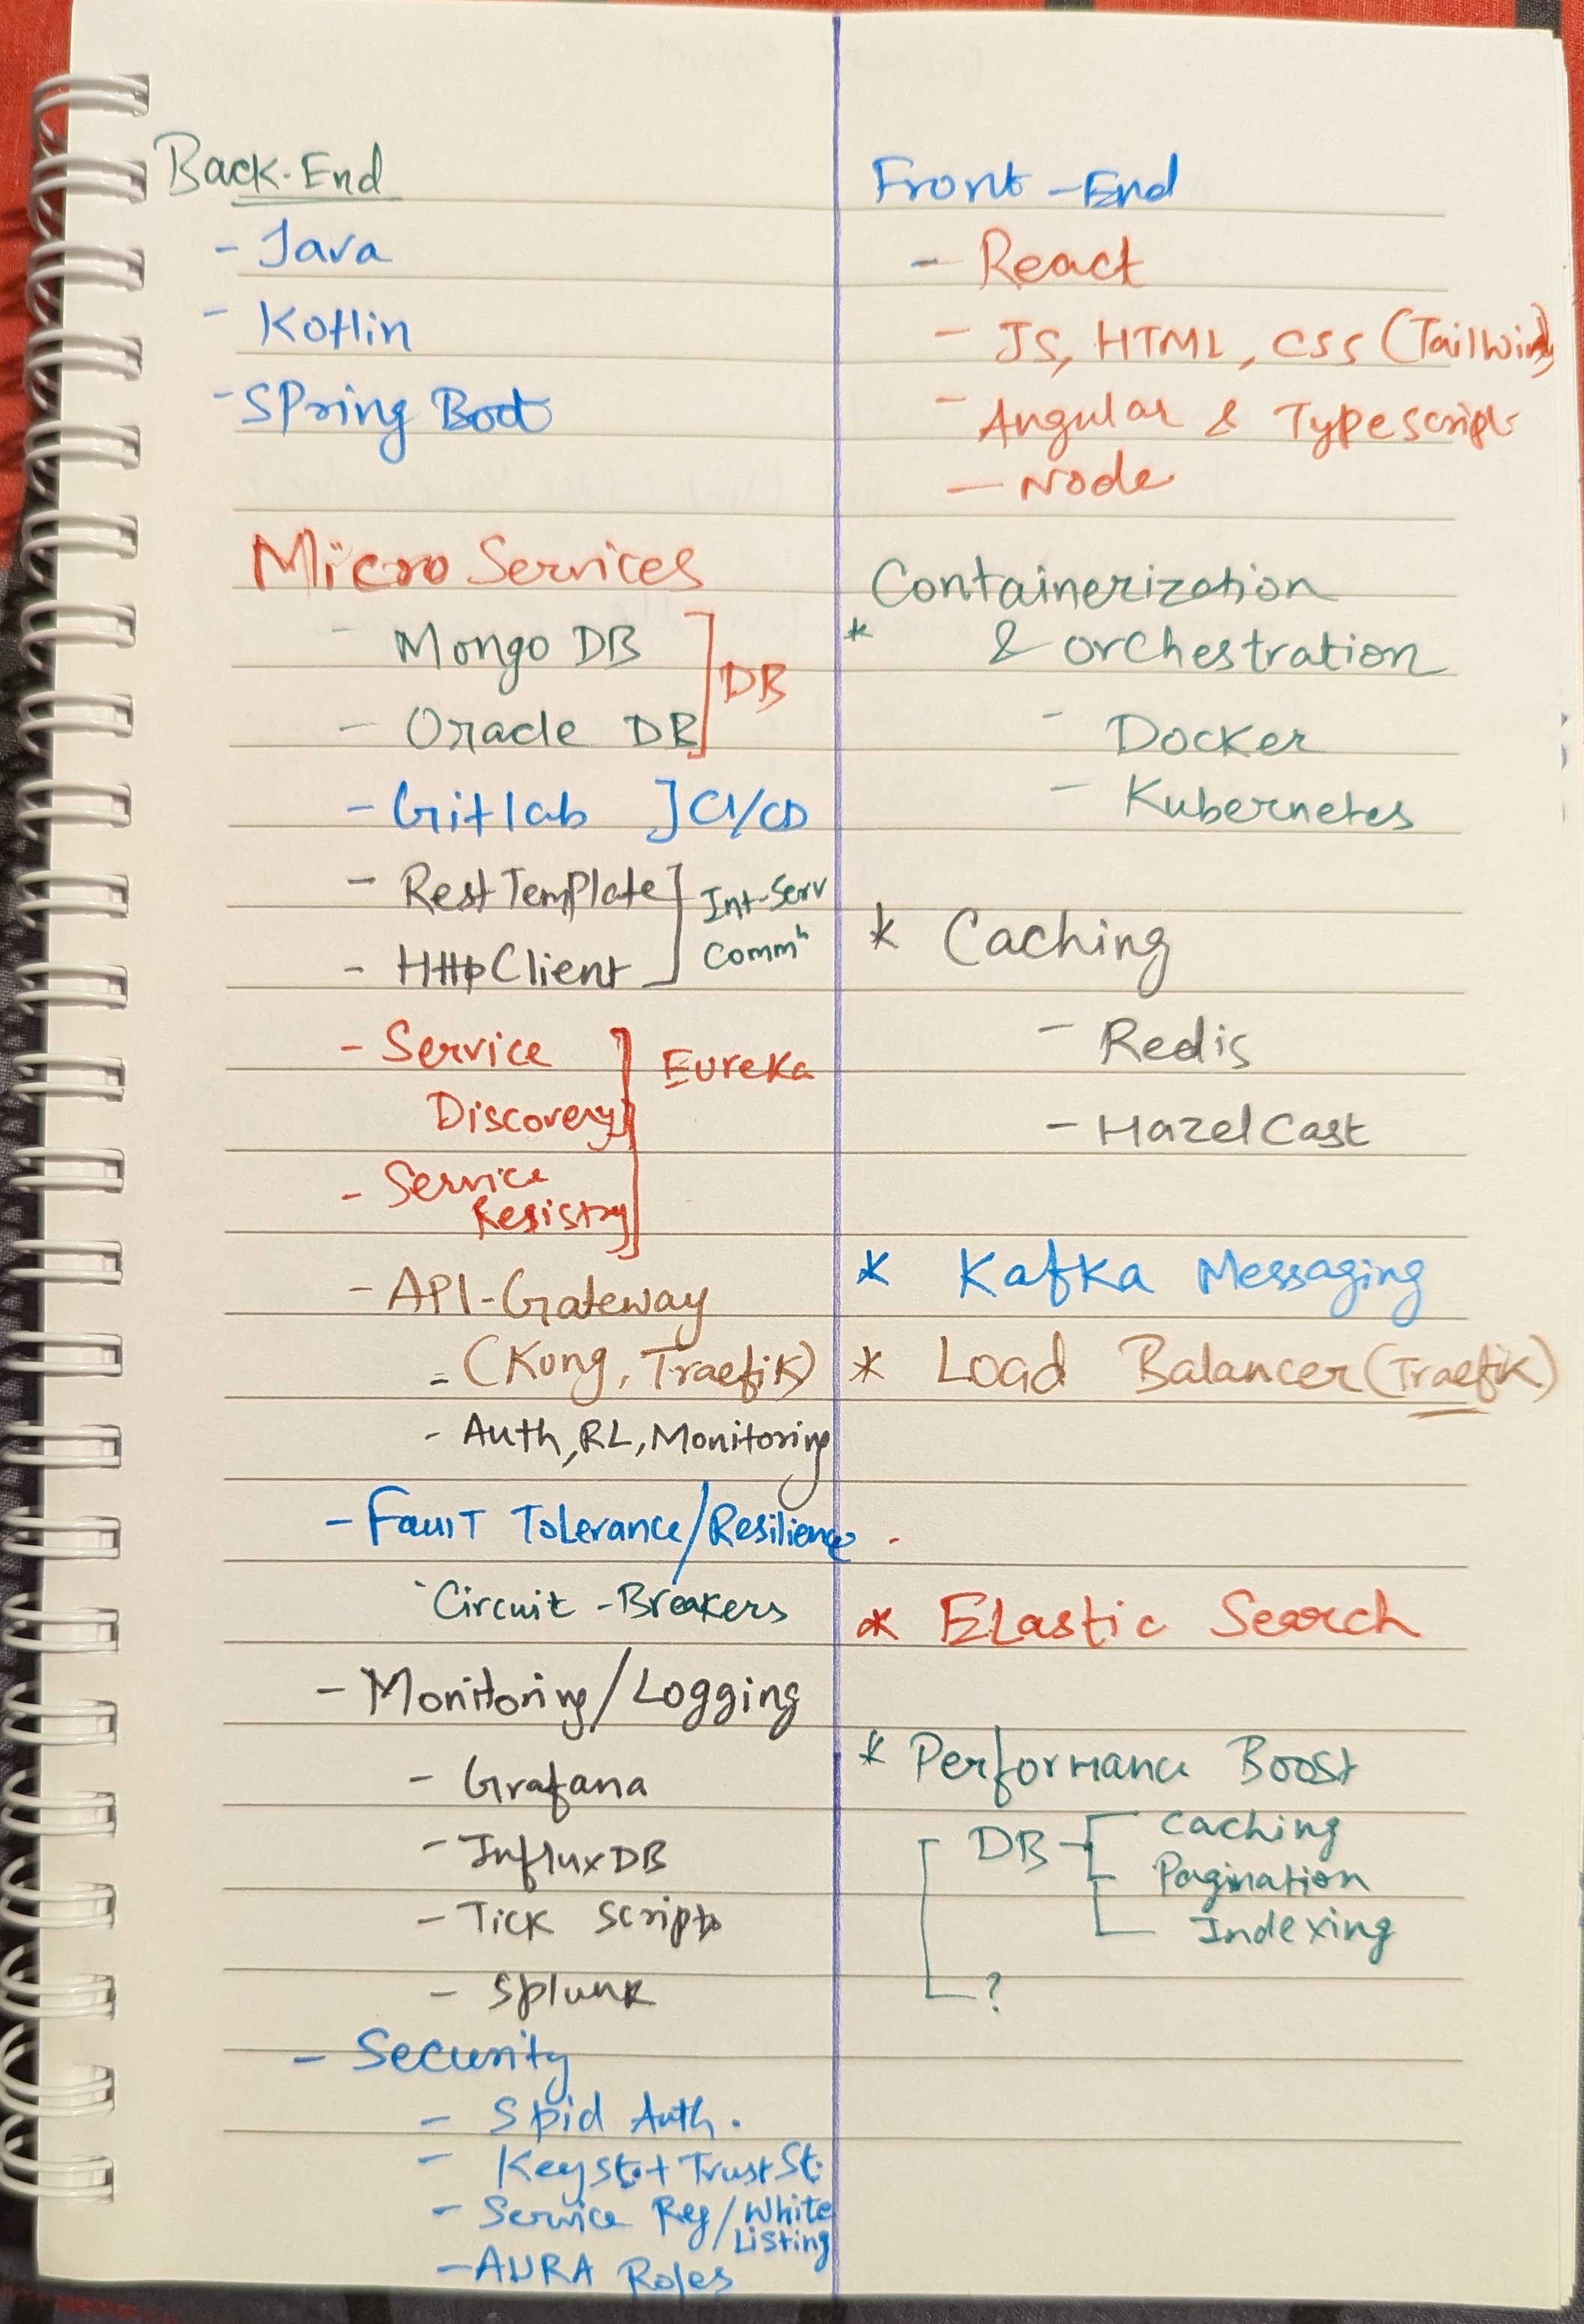 Back-End
- Java
- Kotlin
- Spring Boot
Micro Services
- Mongo DB
- Oracle DB
] DB
- Gitlab ] CI/CD
- RestTemplate
- HttpClient
] Int-Serv
Commⁿ
- Service
Discovery
- Service
Registry
] Eureka
- API-Gateway
= (Kong, Traefik)
- Auth, RL, Monitoring
- Fault Tolerance/Resilience
- Circuit-Breakers
- Monitoring/Logging
- Grafana
- InfluxDB
- Tick Scripts
- Splunk
- Security
- Spid Auth.
- Keyst.+ TrustSt.
- Service Reg/White
Listing
- AURA Roles
Front-End
- React
- JS, HTML, CSS (Tailwind)
- Angular & Typescript
- Node
Containerization
* & orchestration
- Docker
- Kubernetes
* Caching
- Redis
- HazelCast
* Kafka Messaging
* Load Balancer (Traefik)
* Elastic Search
* Performance Boost
DB
Caching
Pagination
Indexing
?